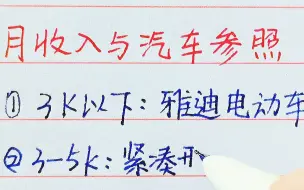 月收入与汽车参照
① 3K以下：雅迪电动车
② 3-5K：紧凑